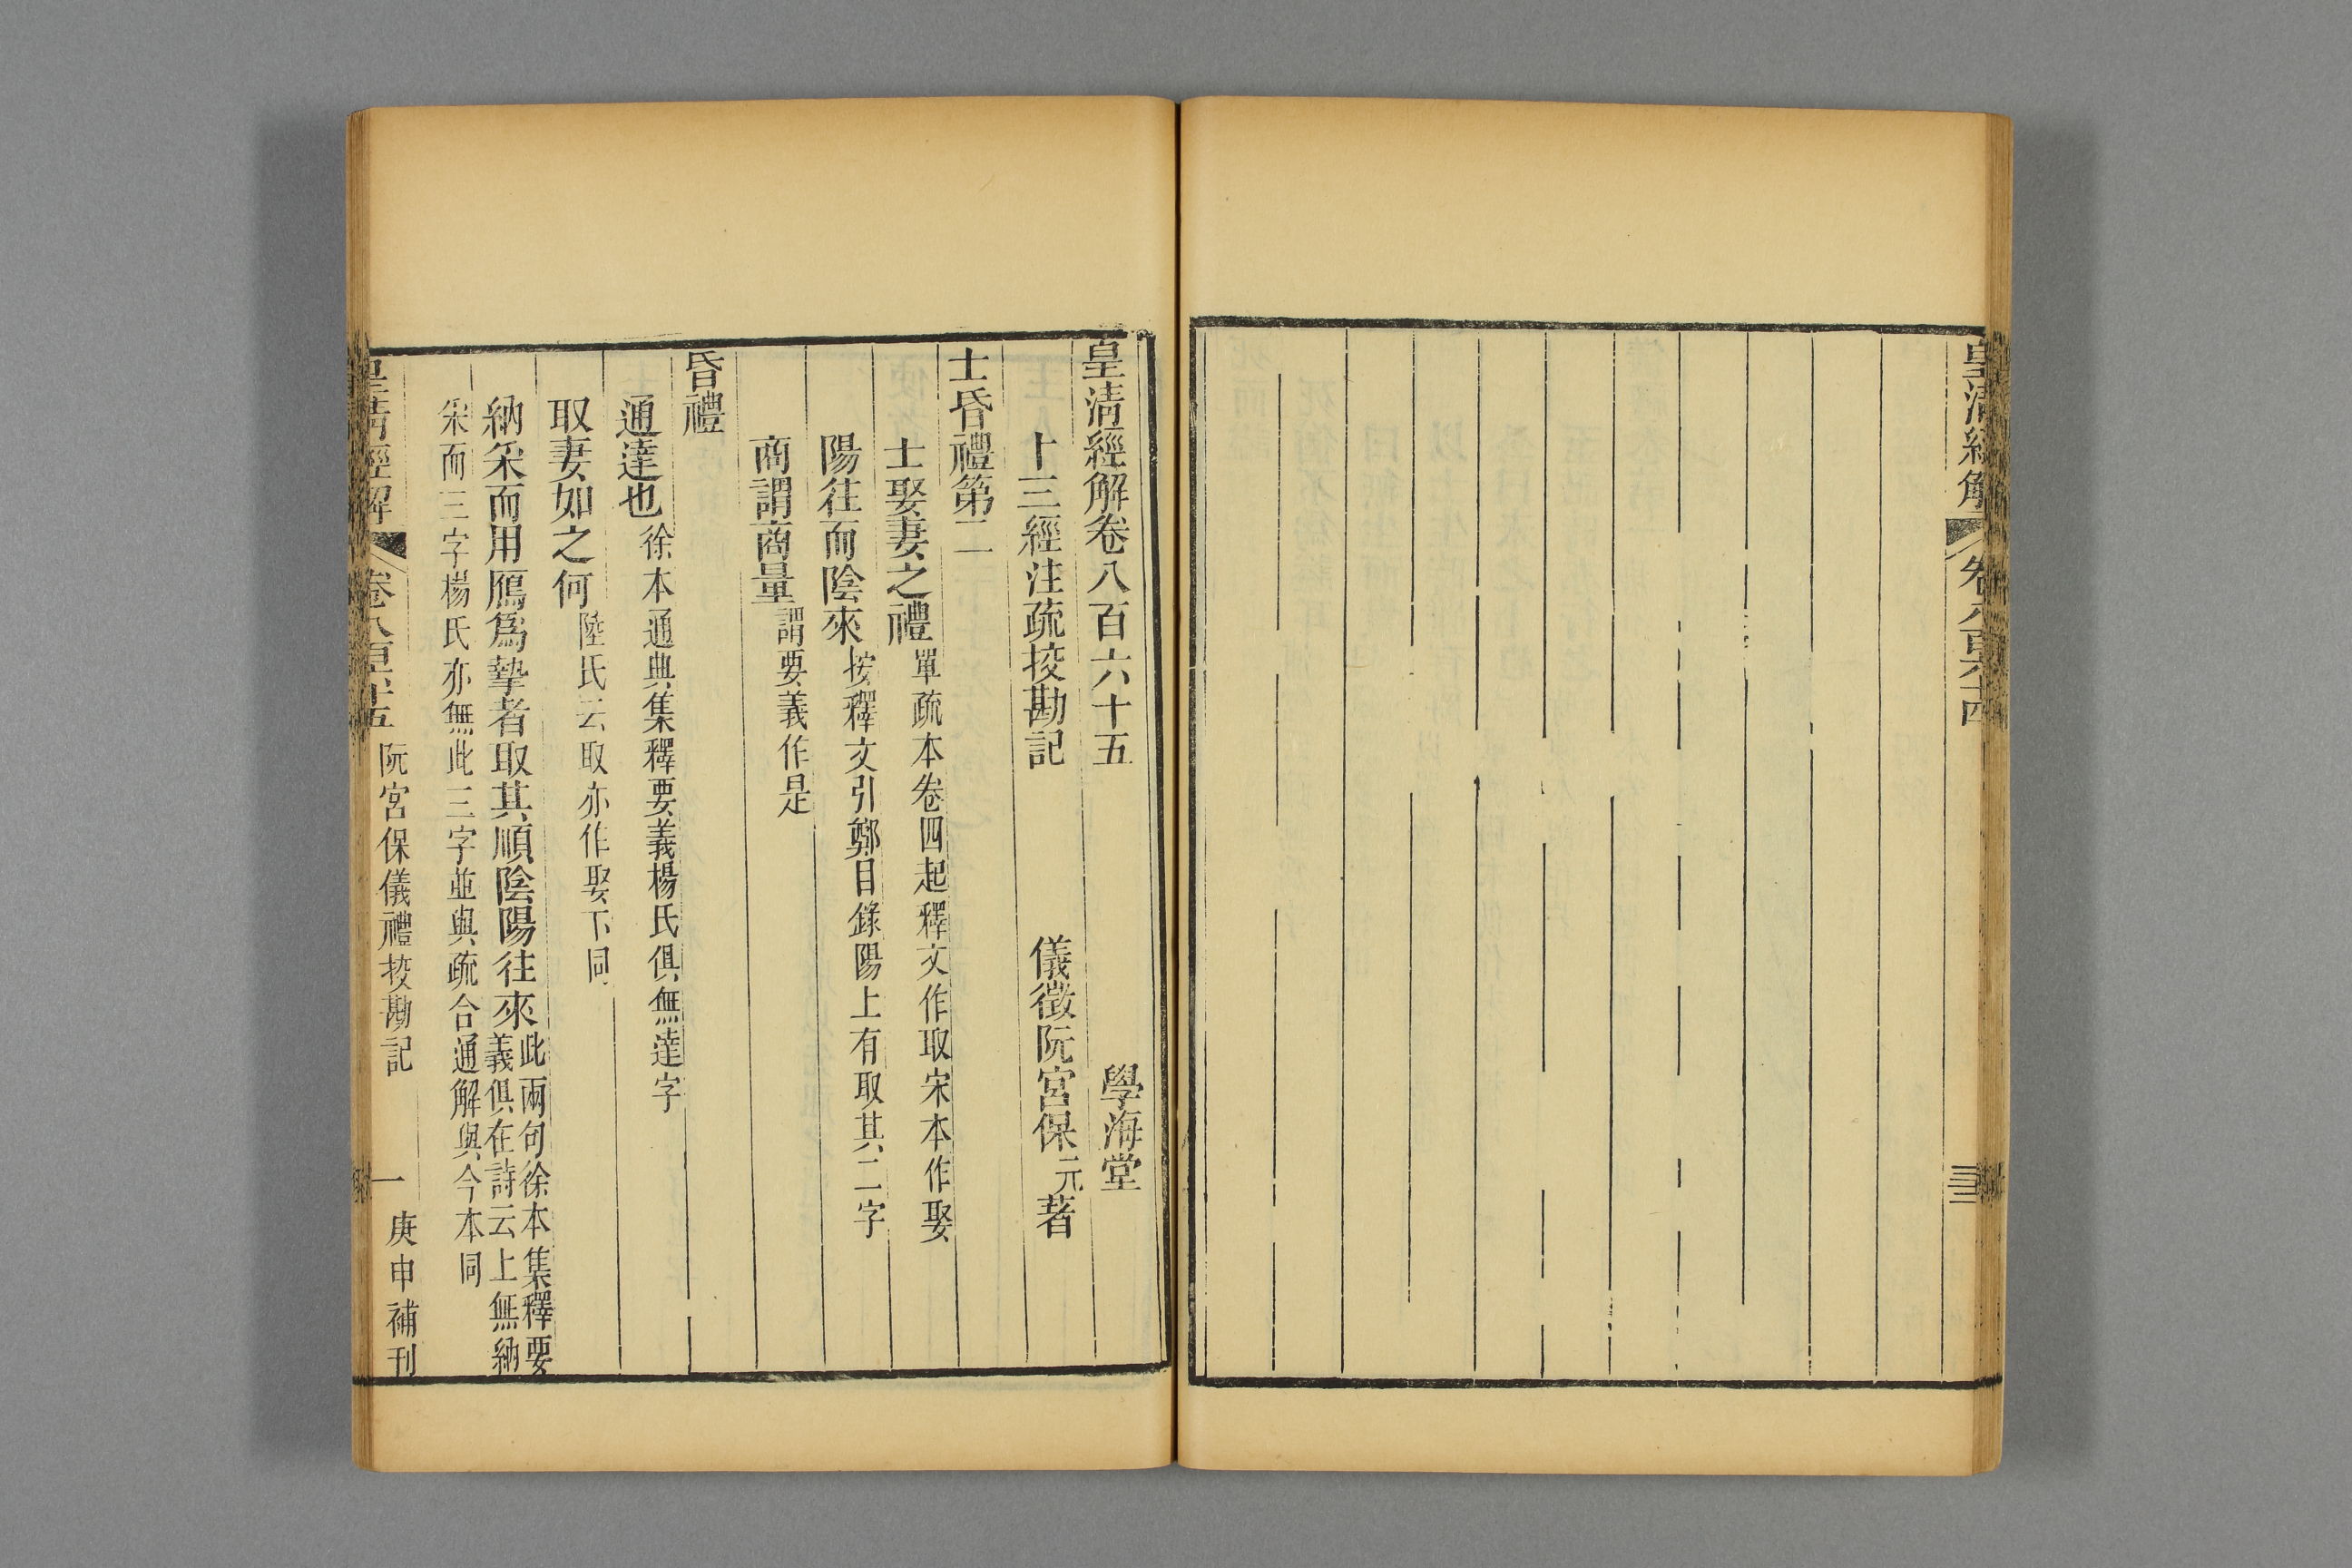 皇清經解 卷八百六十四
皇清經解卷八百六十五 學海堂
十三經注疏挍勘記 儀徵阮宮保元著
士昏禮第二
士娶妻之禮單疏本卷四起釋文作取宋本作娶
陽往而陰來按釋文引鄭目錄陽上有取其二字
商謂商量謂要義作是
昏禮
通達也徐本通典集釋要義楊氏俱無達字
取妻如之何陸氏云取亦作娶下同
納采而用鴈爲摯者取其順陰陽往來此兩句徐本集釋要
義俱在詩云上無納
采而三字楊氏亦無此三字並與疏合通解與今本同
皇清經解 卷八百六十五 阮宮保儀禮挍勘記 一 庚申補刊